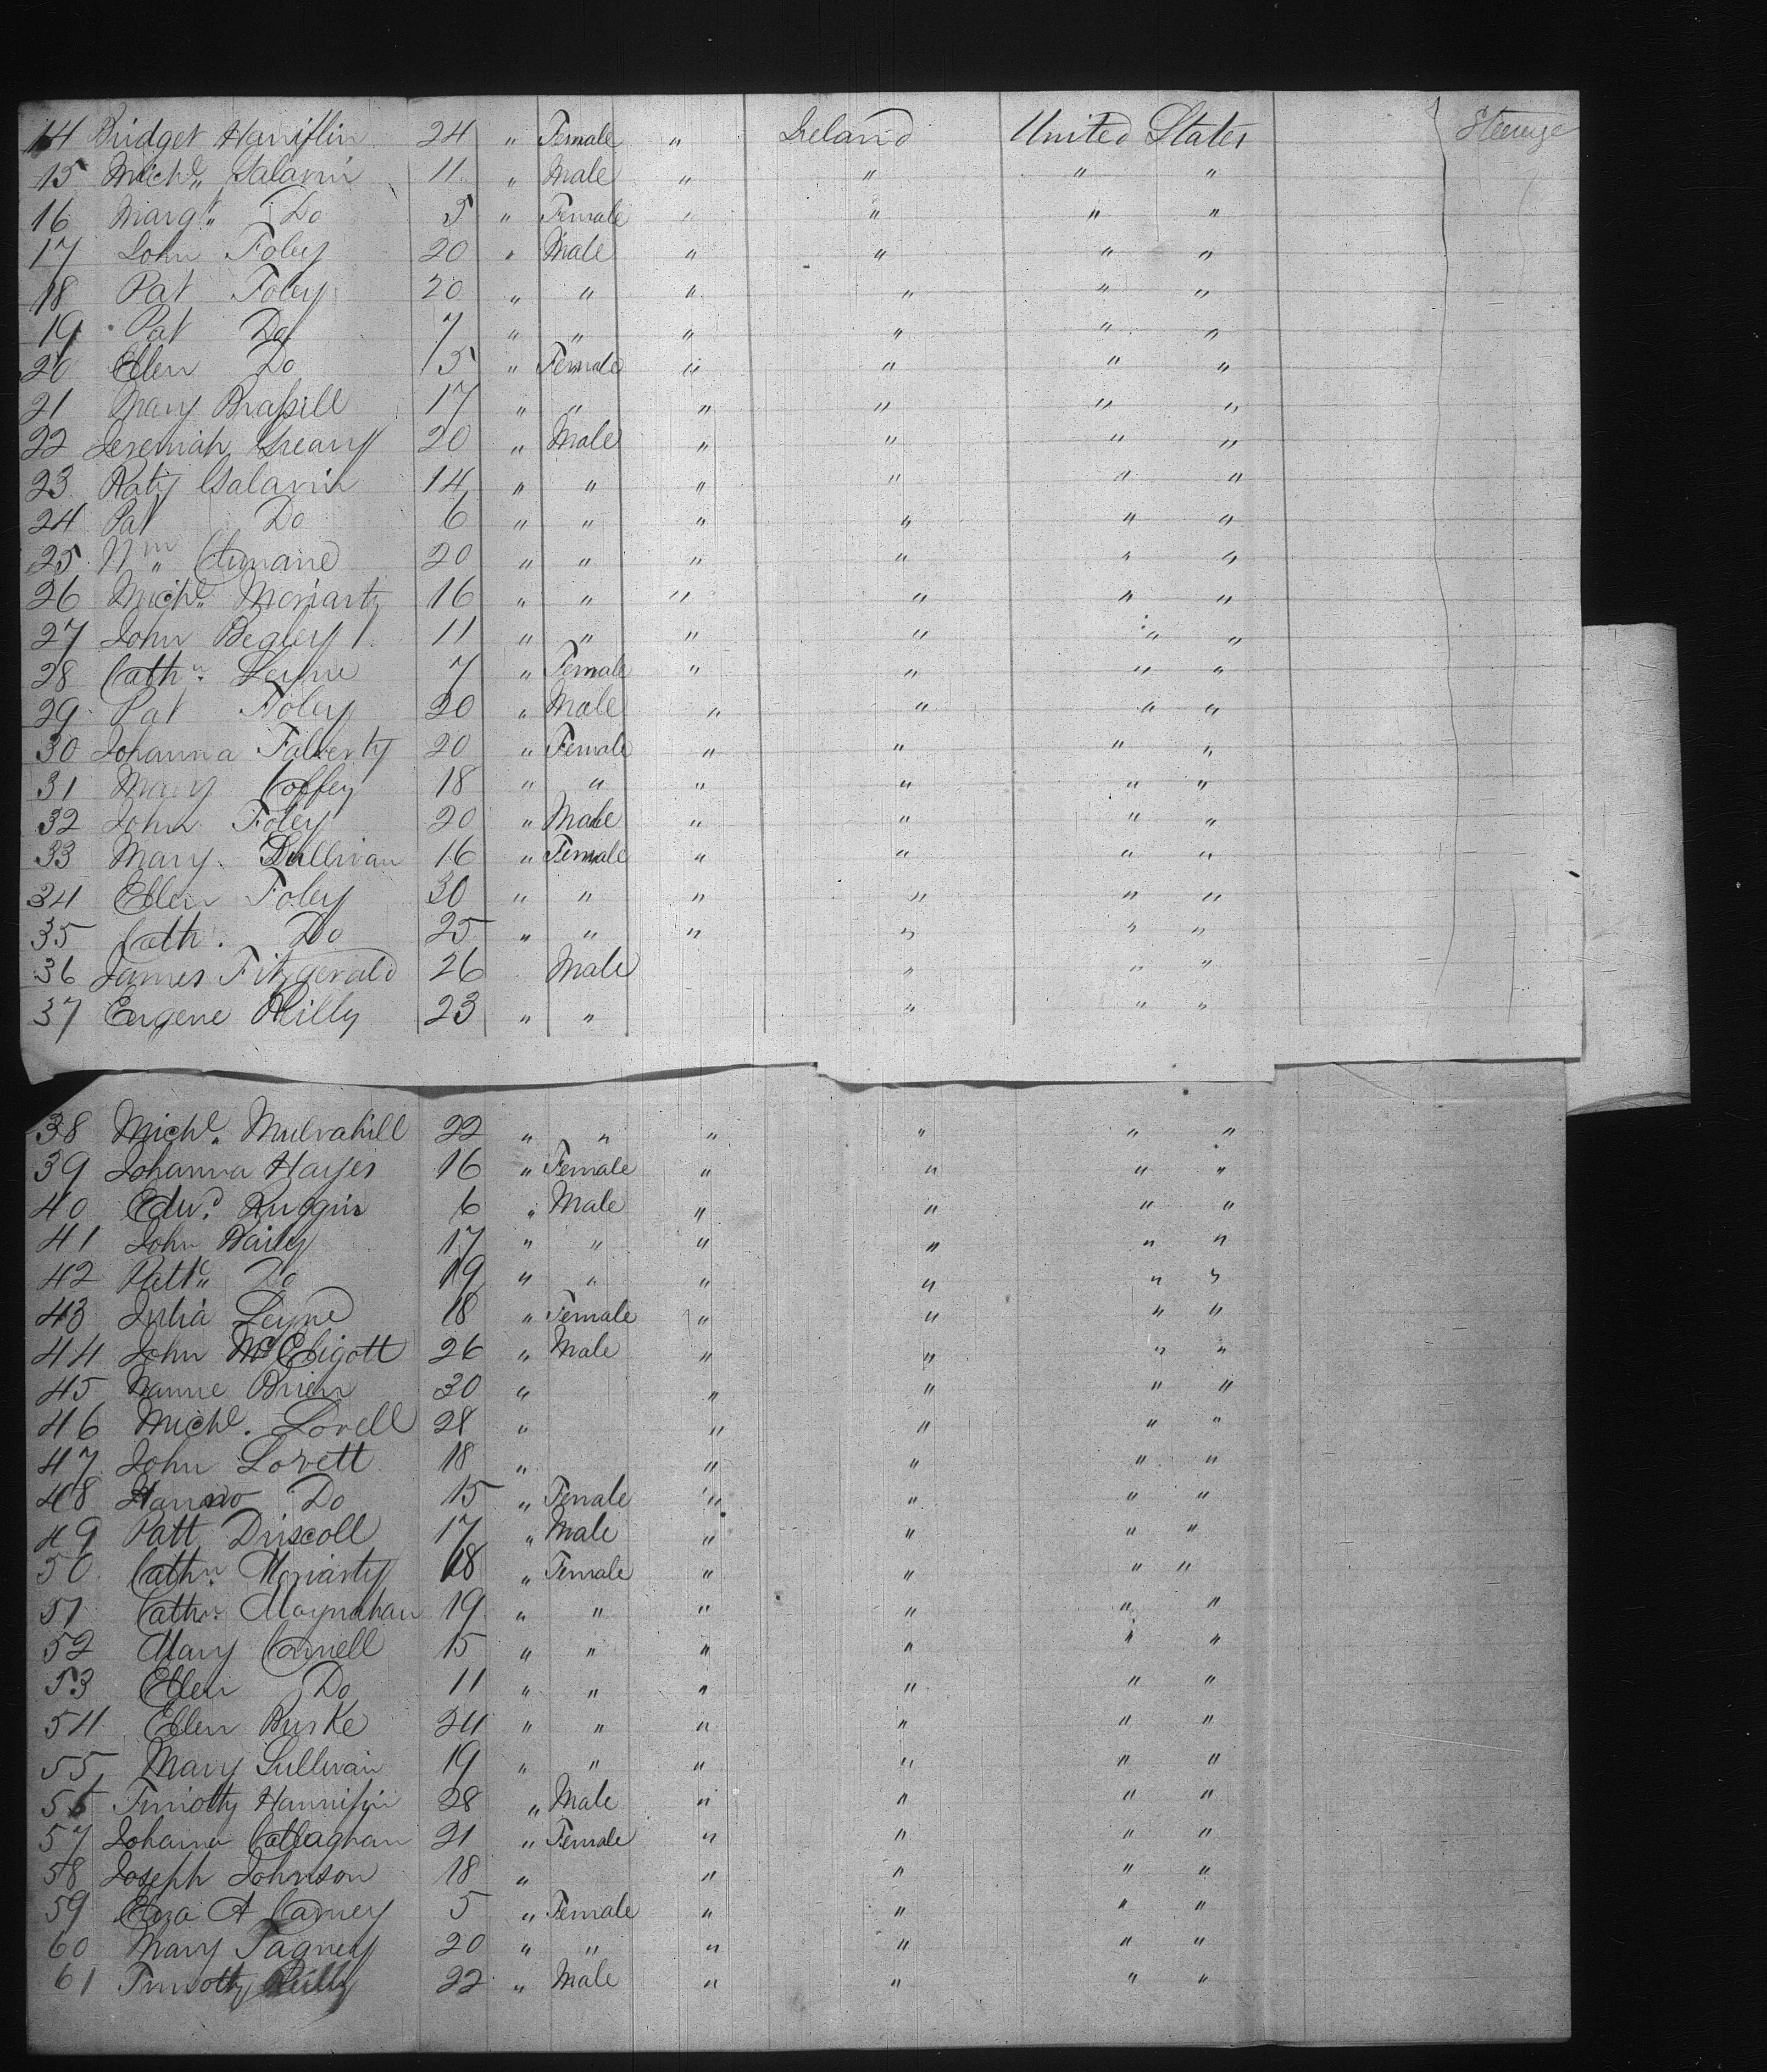 14 Bridget Haniflin 24 " Female " Ireland United States Steerage
15 Michl. Galavin 11 " Male " " " "
16 Margt. Do 5 " Female " " " "
17 John Foley 20 " Male " " " "
18 Pat Foley 20 " " " " " "
19 Pat Do 7 " " " " " "
20 Ellen Do 15 " Female " " " "
21 Mary Braſsill 17 " " " " " "
22 Jeremiah Greany 20 " Male " " " "
23 Paty Galavin 14 " " " " " "
24 Pat Do 6 " " " " " "
25 Wm. 20 " " " " " "
26 Michl. Moriarty 16 " " " " " "
27 John Begley 11 " " " " " "
28 Cathn. Leyne 7 " Female " " " "
29 Pat Foley 20 " Male " " " "
30 Johanna Falverty 20 " Female " " " "
31 Mary Coffey 18 " " " " " "
32 John Foley 20 " Male " " " "
33 Mary Sullivan 16 " Female " " " "
34 Ellen Foley 30 " " " " " "
35 Cath. Do 25 " " " " " "
36 James Fitzgerald 26 Male " " "
37 Eugene Reilly 23 " " " " "
38 Michl. Mulvahill 22 " " " " " "
39 Johanna Hayes 16 " Female " " " "
40 Edwd. 6 " Male " " " "
41 John 17 " " " " " "
42 Patt. Do 19 " " " " " "
43 Julia Leyne 18 " Female " " " "
44 John McEligott 26 " Male " " " "
45 Nanne Brien 30 " " " " "
46 Michl. Lovell 28 " " " " "
47 John Lovett 18 " " " " "
48 Do 15 " Female " " " "
49 Patt Driscoll 17 " Male " " " "
50 Cathn. Moriarty 18 " Female " " " "
51 Cathn. Moynahan 19 " " " " " "
52 Mary Connell 15 " " " " " "
53 Ellen Do 11 " " " " " "
54 Ellen Burke 24 " " " " " "
55 Mary Sullivan 19 " " " " " "
56 Timothy Hannifin 28 " Male " " " "
57 Johanna Callaghan 21 " Female " " " "
58 Joseph Johnson 18 " " " " "
59 Eliza A Carney 5 " Female " " " "
60 Mary Tagney 20 " " " " " "
61 Timothy Reilly 22 " Male " " " "